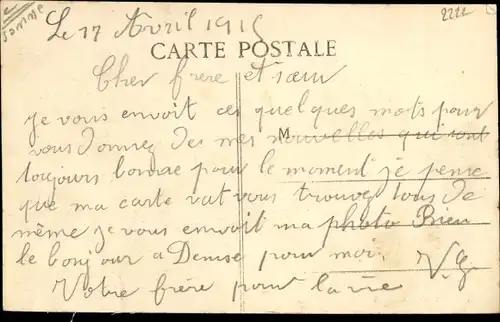 Somme
2222
Le 17 Avril 1915
CARTE POSTALE
Cher frere et sœur
je vous envoit ces quelques mots pour
vous donnez des mes nouvelles qui sont
M
toujours bonne pour le moment je pense
que ma carte vat vous trouvez tous de
même je vous envoit ma photo Bien
le bonjour a Denise pour moi.
V.G.
Votre frère pour la vie